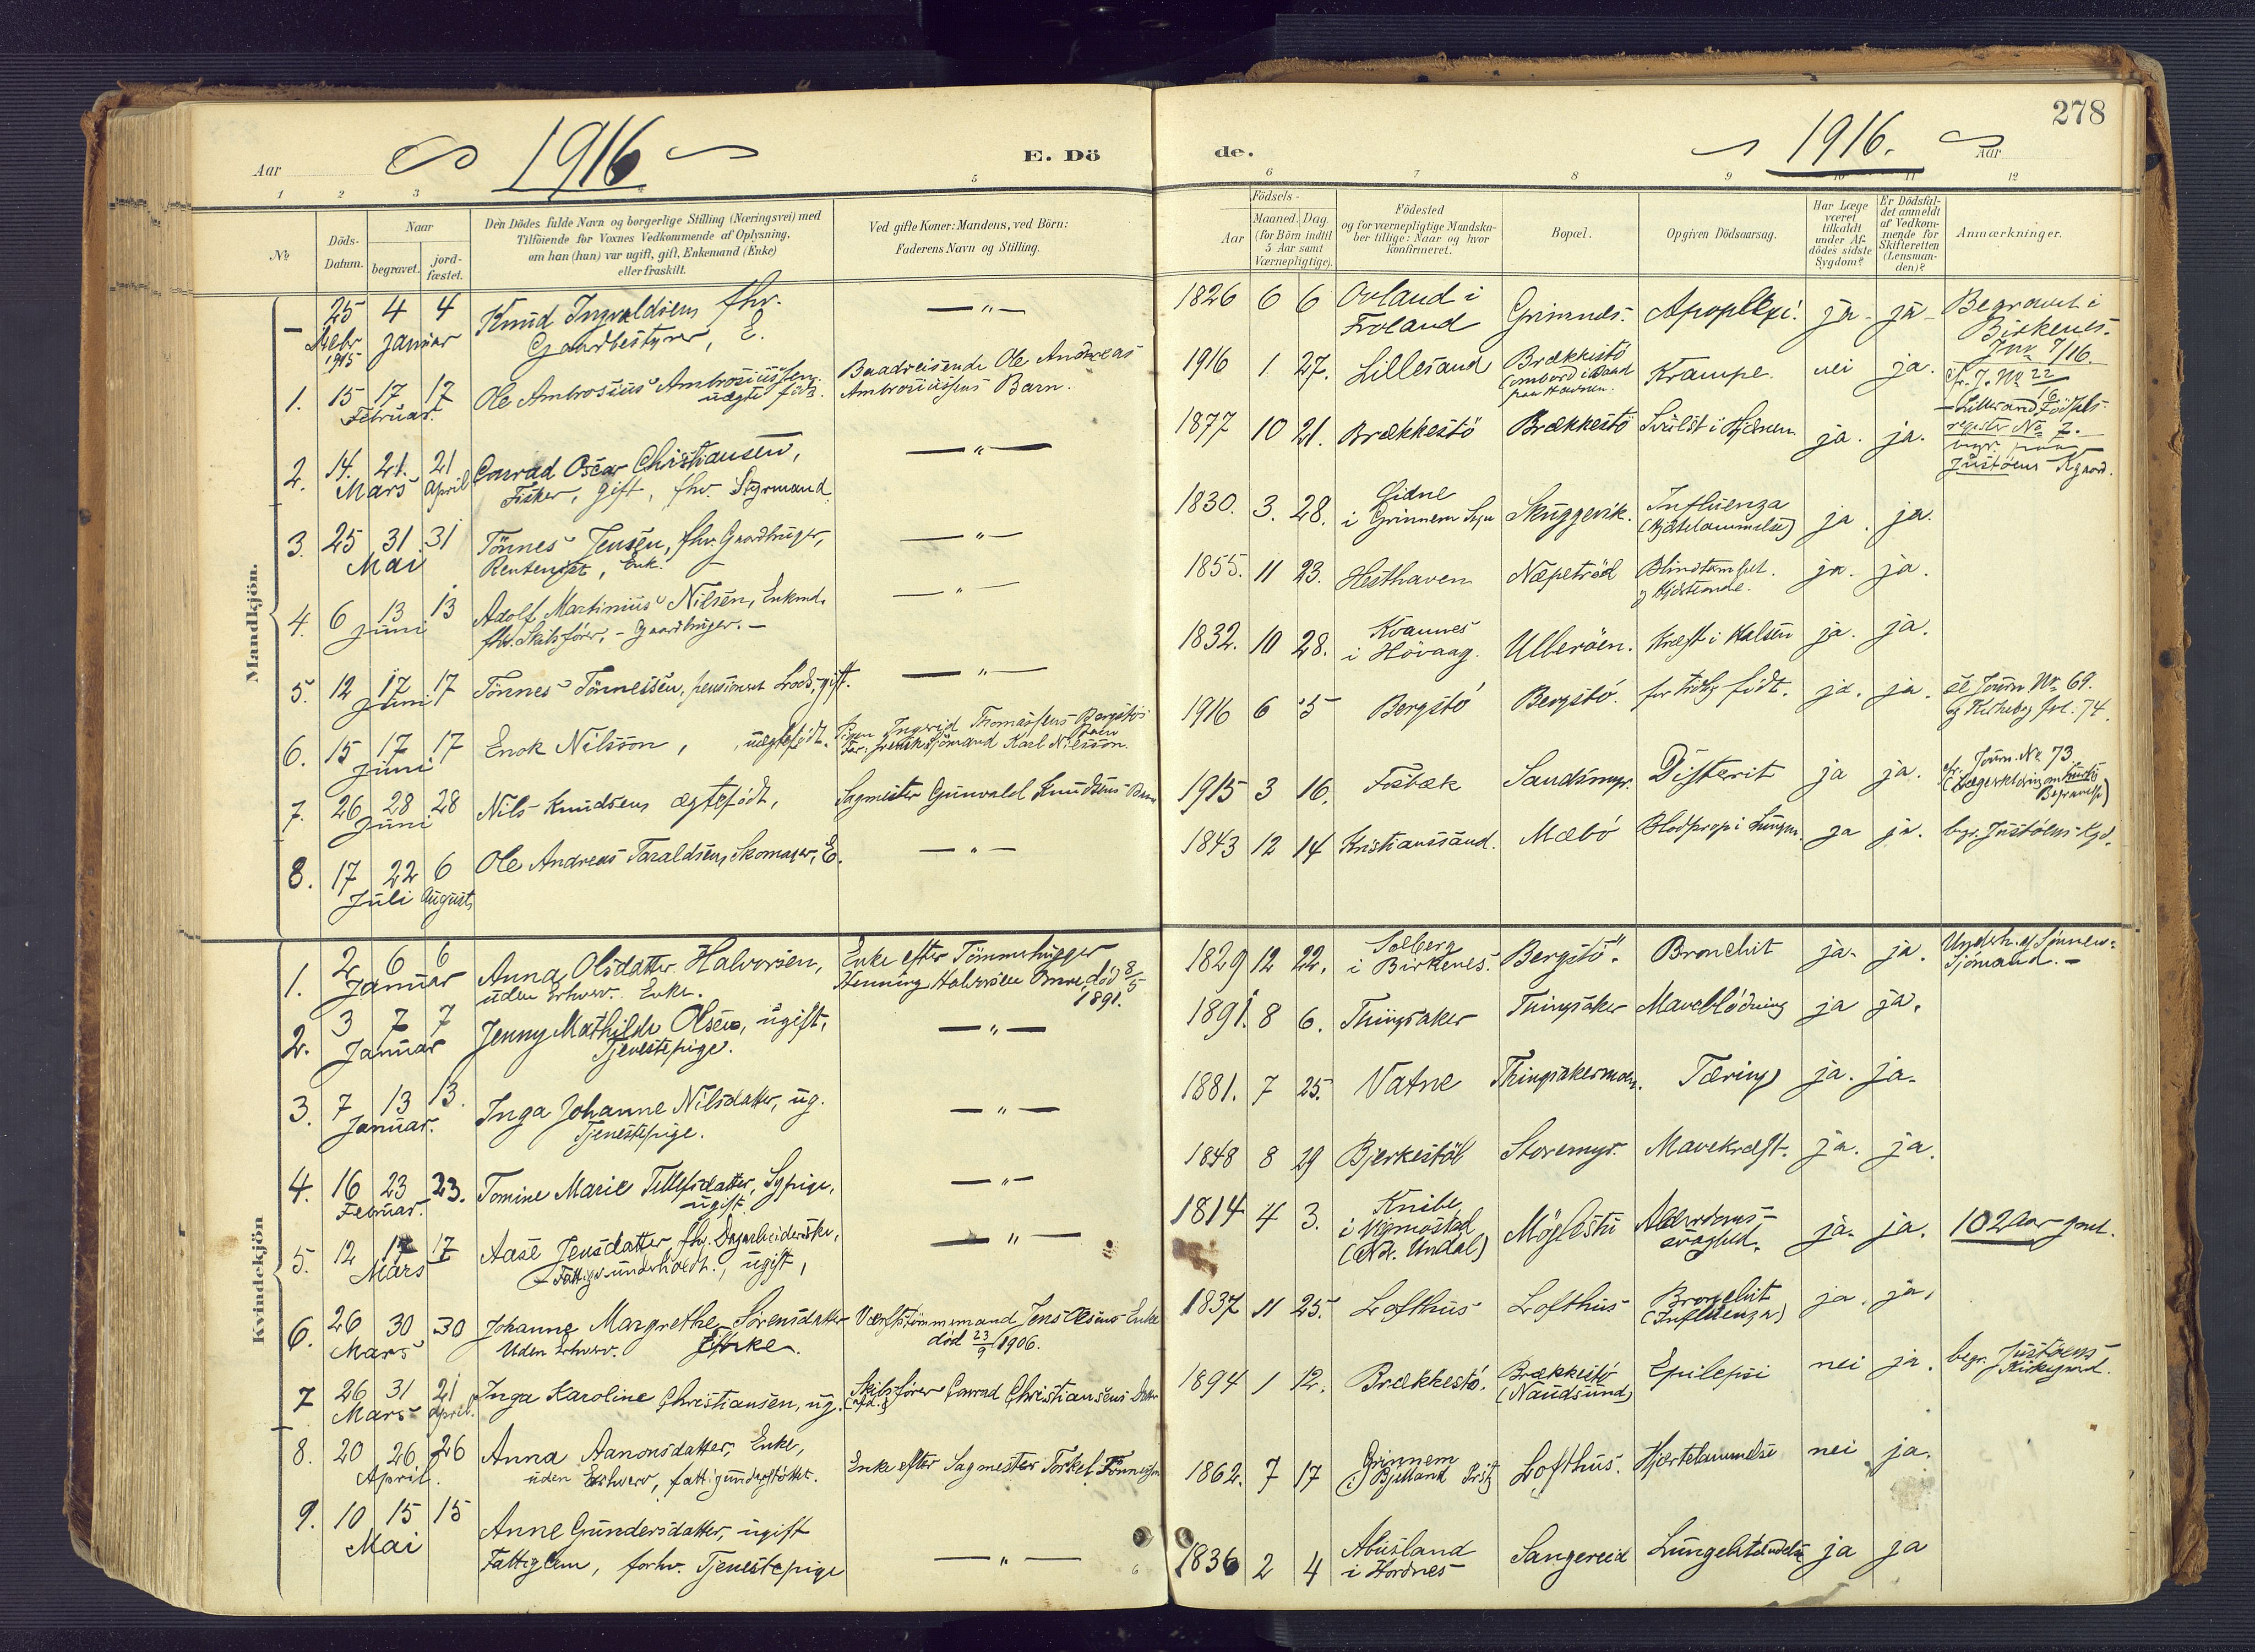 278
Aar 1916 E. Dö de. 1916. Aar
1 2 3 5 6 7 8 9 10 11 12
No
Döds-
Datum.
Naar
begravet.
jord-
fæstet.
Den Dödes fulde Navn og borgerlige Stilling (Næringsvei) med
Tilföiende for Voxnes Vedkommende af Oplysning,
om han (hun) var ugift, gift, Enkemand (Enke)
eller fraskilt.
Ved gifte Koner: Mandens, ved Börn:
Faderens Navn og Stilling.
Födsels-
Aar
Maaned. Dag.
(for Börn indtil
5 Aar samt
Værnepligtige).
Födested
og for værnepligtige Mandska-
ber tillige: Naar og hvor
konfirmeret.
Bopæl.
Opgiven Dödsaarsag.
Har Læge
været
tilkaldt
under Af-
dödes sidste
Sygdom?
Er Dödsfal-
det anmeldt
af Vedkom-
mende for
Skifteretten
(Lensman-
den)?
Anmærkninger.
Mandkjön.
– 25 4 4 Knud Ingvaldsen, fhv. — " — 1826 6 6 Ovland i Grimnes. Apoplexi. ja. ja. Begravet i
Debr 1915 Januar Gaardbestyrer, E. Froland Birkenes.
Jnr 7/16.
1. 15 17 17 Ole Ambrosius Ambrosiussen Baadreisende Ole Andreas 1916 1 27. Lillesand Brækkestö Krampe. nei ja. cfr. J. No 22/16
Februar. uægte föd. Ambrosiussens Barn. (ombord i Baad paa Havnen. – Lillesand Födsels-
register No 7.
2. 14. 21. 21 Conrad Oscar Christiansen, — " — 1877 10 21. Brækkestö Brækkestö Svulst i Hjernen ja. ja.
Mars April Fisker, gift, fhv. Styrmand. Justöens Kgaard.
3. 25 31 31 Tönnes Jensen, fhv. Gaardbruger, — " — 1830. 3. 28. Eidne i Grinnem Sogn Skuggevik. Influenza ja. ja.
Mai Rentenist, Enk. (Hjertelammelse)
4. 6 13 13 Adolf Martinius Nilsen, Enkmd. — " — 1855. 11 23. Hesthaven Næpetröd Blindtarmbet. ja. ja.
Juni fhv. Skibsförer, – Gaardbruger. –
5. 12 17 17 Tönnes Tönnessen, pensioneret Lods, gift. — " — 1832. 10 28. Kvannes i Hövaag. Ulleröen. Kræft i Halsen ja. ja.
Juni
6. 15 17 17 Enok Nilsson, uægtefödt. Pigen Ingerid Thomassens Bergstös 1916 6 5 Bergstö Bergstö. for tidlig födt. ja. ja. se Journ No. 69.
Juni Far: svensk Sjömand Karl Nilsson. fol. 74.
7. 26 28 28 Nils Knudsen, ægtefödt, Sagmester Gunvald Knudsens Barn 1915 3 16. Fosbæk Sandsmyr. Difterit ja ja. cfr. Journ. No. 73
Juni (Lægeerklæring om hurtig Begravelse)
8. 17 22 6 Ole Andreas Taraldsen, Skomager, E. — " — 1843 12 14 Kristianssand. Mæbö Blodprop i Lungen. ja ja. begr. Justöens Kgd.
Juli August
Kvindekjön
1. 2 6 6 Anna Olsdatter Halvorsen, Enke efter Tömmerhugger 1829 12 22. Solberg i Birkenes. Bergstö. Bronchit ja. ja. Underh. af Sönnen:
Januar uden Erhverv. Enke. Henning Halvorsen, död 8/5 1891. Sjömand. –
2. 3 7 7 Jenny Mathilde Olsen, ugift, — " — 1891. 8 6. Thingsaker Thingsaker Maveblödning ja ja.
Januar Tjenestepige.
3. 7 13 13. Inga Johanne Nilsdatter, ug. — " — 1881. 7 25. Vatne Thingsakermoen. Tæring ja. ja.
Januar. Tjenestepige.
4. 16 23 23. Tomine Marie Tellefsdatter, Sypige, — " — 1848 8 29 Bjerkestöl Storemyr. Mavekræft. ja. ja.
Februar. ugift.
5. 12 17 17 Aase Jensdatter, fhv. Dagarbeiderske, — " — 1814 4 3. Knibe i Vigmostad (Ndr. Undal) Möglestu Alderdoms- svaghed. ja. ja. 102 Aar gml.
Mars – Fattigunderholdt., ugift,
6. 26 30 30 Johanne Margrethe Sörensdatter Værftstömmermand Jens Olsens Enke 1837 11 25. Lofthus Lofthus Bronchit ja. ja.
Mars Uden Erhverv. Enke. död 23/9 1906. (Influenza)
7 26 31 21 Inga Karoline Christiansen, ug. Skibsförer Conrad Christiansens Datter 1894 1 12. Brækkestö. Brækkestö (Naudsund) Epilepsi nei ja. begr. Justöens
Mars April. Kirkegaard.
8. 20 26 26 Anna Aanonsdatter, Enke, Enke efter Sagmester Torkel Tönnessen 1862. 7 17 Grinnem i Bjelland Prstg Lofthus. Hjertelammelse nei ja.
April. uden Erhverv, fattigunderstöttet.
9. 10 15 15 Anne Gundersdatter, ugift — " — 1836 2 4 Abusland i Hordnes Sangereid Lungebetændelse ja ja
Mai Fattiglem, forhv. Tjenestepige